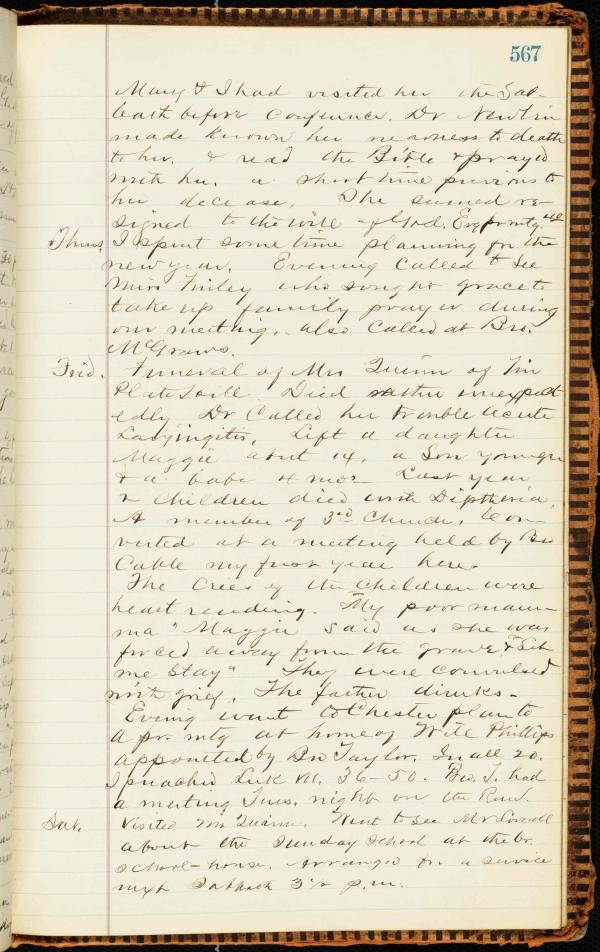 567
Mary & I had visited her the Sab-
bath before Conference. Dr Newlin
made known her nearness to death
to her. & read the Bible & prayed
with her. a short time previous to
her decease. She seemed re-
signed to the will of God. Eve pr mtg.
Thurs. I spent some time planning for the
new year. Evening Called to See
Miss Finley who sought grace to
take up family prayer during
our meeting. also Called at Bro.
McGraws.
Frid. Funeral of Mrs Quinn of Tin
Plate Died rather unexpect
edly Dr Called her trouble acute
Laryingitis. Left a daughter
Maggie abut 14, a Son younger
& a babe 4 mos. Last year
2 Children died with Diptheria.
A member of 3rd Church. Con-
verted at a meeting held by Bro
Cable my first year here.
The Cries of the Children were
heart rending. "My poor mam-
ma" Maggie Said as she was
forced away from the grave. "Let
me Stay" They were convulsed
with grief. The father drinks.
Evning went to Chester plan to
a pr. mtg at home of Phillips
appointed by Bro Taylor. In all 20.
I preached Luk VII. 36-50. Bro. T. had
a meeting Tues. night on the
Sat. Visited Mr Quinn. Went to See Mr
about the Sunday School at the br.
School-house. Arranged for a service
next Sabbath 3½ p.m.